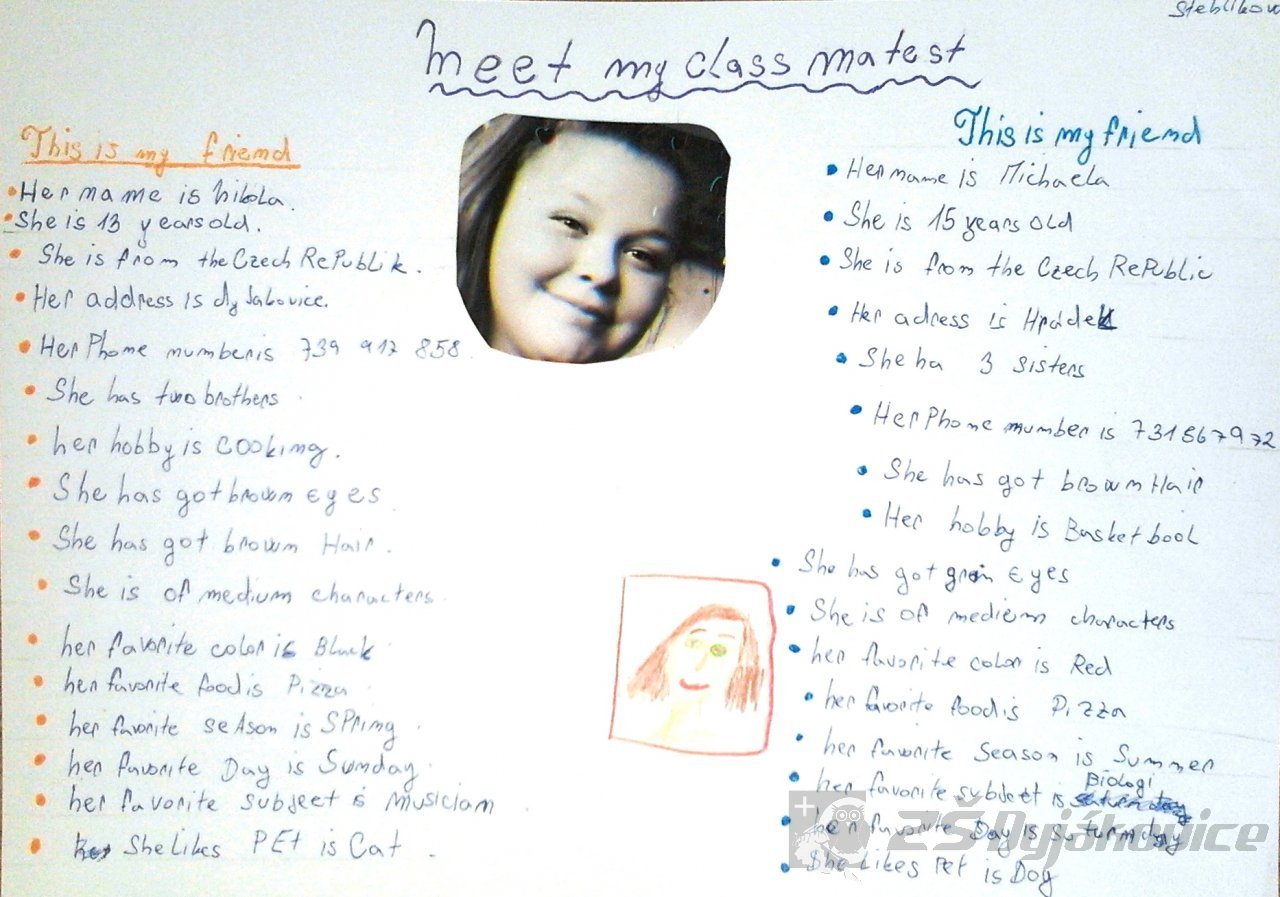 Steblíkov
Meet my class matest
This is my friend
Her name is Nikola.
She is 13 years old.
She is from the Czech RePublik.
Her address is
Her Phone number is 739 912 858
She has two brothers
her hobby is cooking.
She has got brown Eyes
She has got brown Hair.
She is of medium characters.
her favorite color is Black
her favorite food is Pizza
her favorite seAson is SPring
her favorite Day is Sunday.
her favorite subject is musician
She Likes PEt is Cat.
This is my friend
Her name is Michaela
She is 15 years old
She is from the Czech RePublic
Her adress is Hrádek
She ha 3 sisters
Her Phone number is 731867972
She has got brown Hair
Her hobby is Basketbool
She has got Eyes
She is of medium characters
her favorite color is Red
her favorite food is Pizza
her favorite Season is Summer
her favorite subject is Biologi
her favorite Day is saturnday
She Likes Pet is Dog
ZŠ Nyjákovice